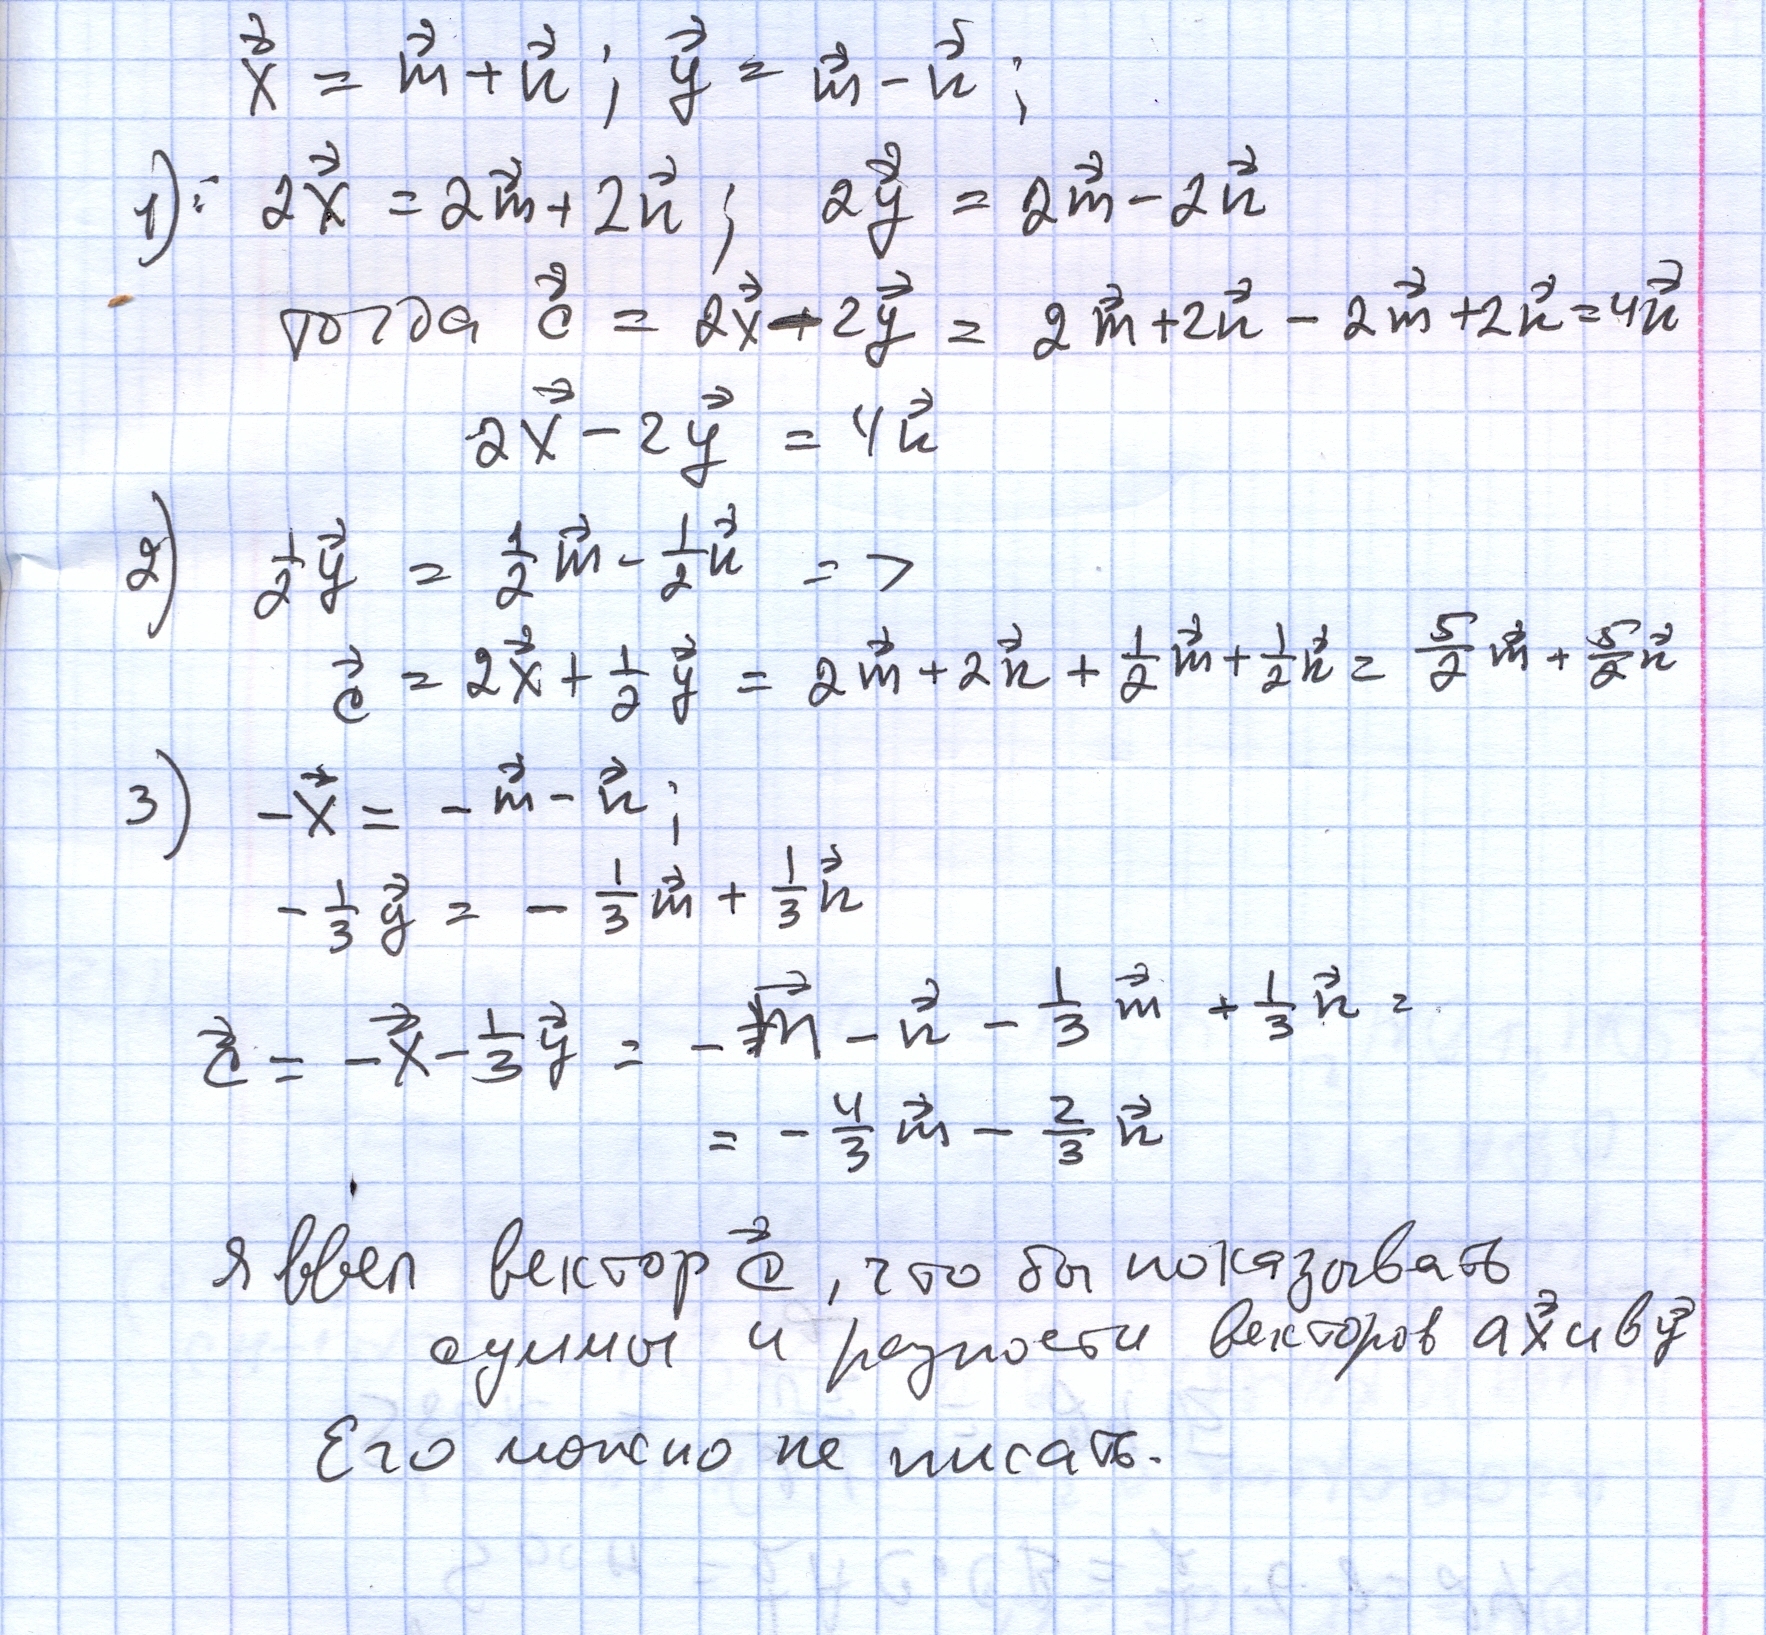 x⃗ = m⃗ + n⃗ ; y⃗ = m⃗ − n⃗ ;
1): 2x⃗ = 2m⃗ + 2n⃗ ; 2y⃗ = 2m⃗ − 2n⃗
тогда c⃗ = 2x⃗ − 2y⃗ = 2m⃗ + 2n⃗ − 2m⃗ + 2n⃗ = 4n⃗
2x⃗ − 2y⃗ = 4n⃗
2) 1/2 y⃗ = 1/2 m⃗ − 1/2 n⃗ =>
c⃗ = 2x⃗ + 1/2 y⃗ = 2m⃗ + 2n⃗ + 1/2 m⃗ + 1/2 n⃗ = 5/2 m⃗ + 5/2 n⃗
3) −x⃗ = −m⃗ − n⃗ ;
−1/3 y⃗ = −1/3 m⃗ + 1/3 n⃗
c⃗ = −x⃗ − 1/3 y⃗ = −m⃗ − n⃗ − 1/3 m⃗ + 1/3 n⃗ =
= −4/3 m⃗ − 2/3 n⃗
я ввел вектор c⃗, что бы показывать
суммы и разности векторов ax⃗ и вy⃗
Его можно не писать.